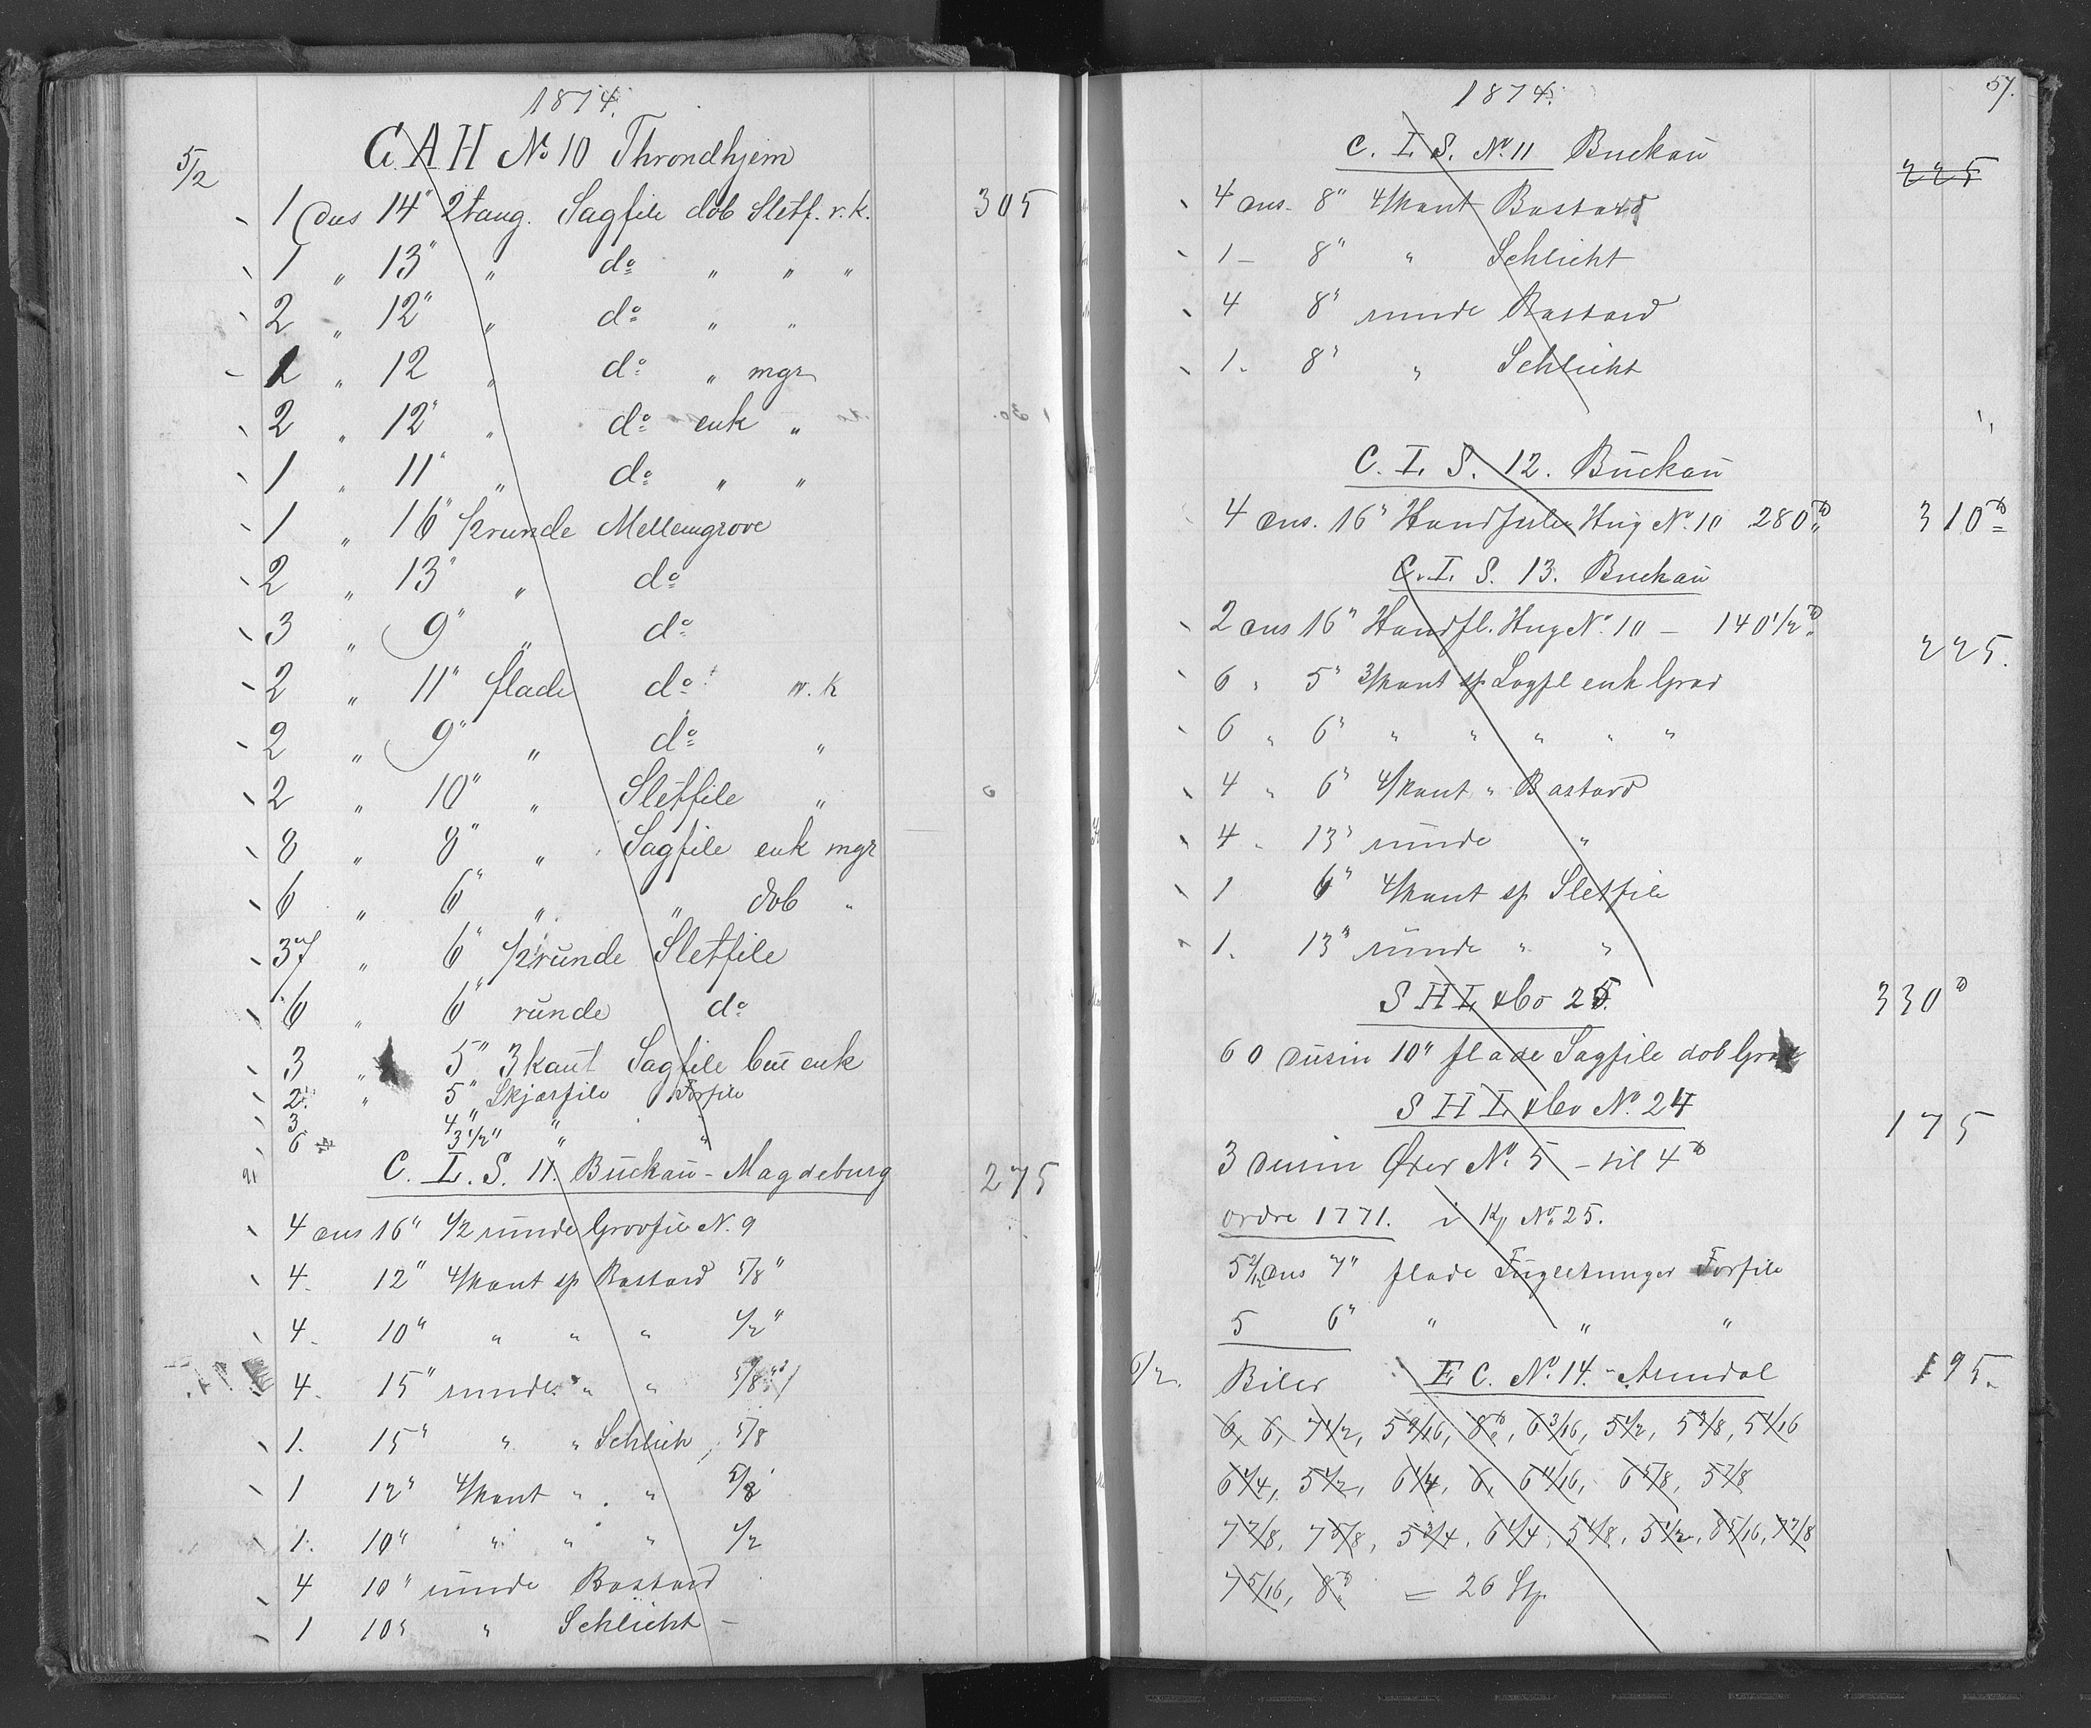 1874.
5/2
G A H No 10 Throndhjem
1 dus 14" 2tang. Sagfile dob Sletf. v. k. 305
1 " 13" " do " " "
2 " 12" " do " "
1 " 12 " do " mgr
2 " 12" " do enk "
1 " 11" " do " "
1 " 16" 1/2runde Mellemgrove
2 " 13" " do
3 " 9" " do
2 " 11" flade do v. k
2 " 9" " do "
2 " 10" " Sletfile "
8 " 8" " Sagfile enk mgr
6 " 6" " " dob "
" 6" 1/2runde Sletfile
6 " 6" runde do
3 " 5" 3kant Sagfile enk
2. " 5" Skjærfile Forfile
3 4" "
6 3 1/2" " "
C. I. S. 11. Buckau-Magdeburg 275
4 dus 16" 1/2 runde Grovfile N. 9
4. 12" 4/kant sp Bastard 5/8"
4. 10" " " " 1/2"
4. 15" runde " " 5/8"
1. 15" " " Schlich 5/8
1 12" 4/kant " " 5/8"
1. 10" " " " 1/2
4 10" runde Bastard
1 10" " Schlicht –
1874.
57.
C. I. S. No. 11 Buckau
225
4 dus. 8" 4/kant Bastard
1 – 8" " Schlicht
4 8" runde Bastard
1. 8" " Schlicht
C. I. S. 12. Buckau
4 dus. 16" Handfile Hug No. 10 280 310
C. I. S. 13. Buckau
2 dus 16" Handfl. Hug No. 10 – 140 1/2
225.
6 " 5" 3/kant sp Sagfl enk Grad
6 " 6" " " " " "
4 " 6" 4/kant " Bastard
4 " 13" runde "
1 6" 4/kant sp Sletfile
1. 13" runde " "
S H I & Co 25. 330
60 dusin 10" flade Sagfile dob Grad
S H I & Co No. 24
175
3 dusin Öxer No. 5 – til 4
ordre 1771. i Kp No. 25.
dus 7" flade Fugletunger Forfile
5 6" " " "
6/2. Biler E C. No. 14. - Arendal 195.
6, 6, 7 1/2, 5 9/16, 8, 6 3/16, 5 1/2, 5 7/8, 5 1/16
6 1/4, 5 1/2, 6 1/4, 6, 6 11/16, 6 5/8, 5 7/8
7 7/8, 7 5/8, 5 3/4, 6 1/4, 5 1/8, 5 1/2, 8 5/16, 7 7/8
7 5/16, 8 = 26 Stp